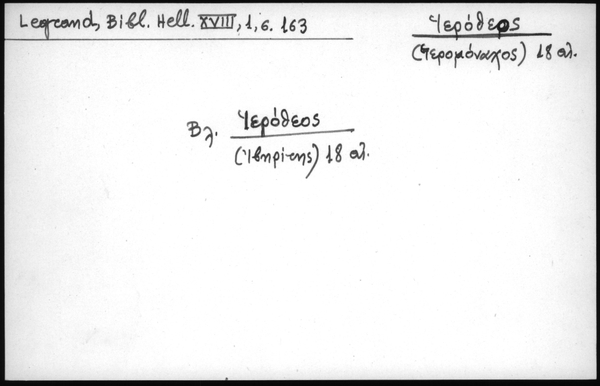 Legrand, Bibl. Hell. XVIII, 1, σ. 163
Ἱερόθεος
(Ἱερομόναχος) 18 αι.
Βλ. Ἱερόθεος
(Ἰβηρίτης) 18 αι.